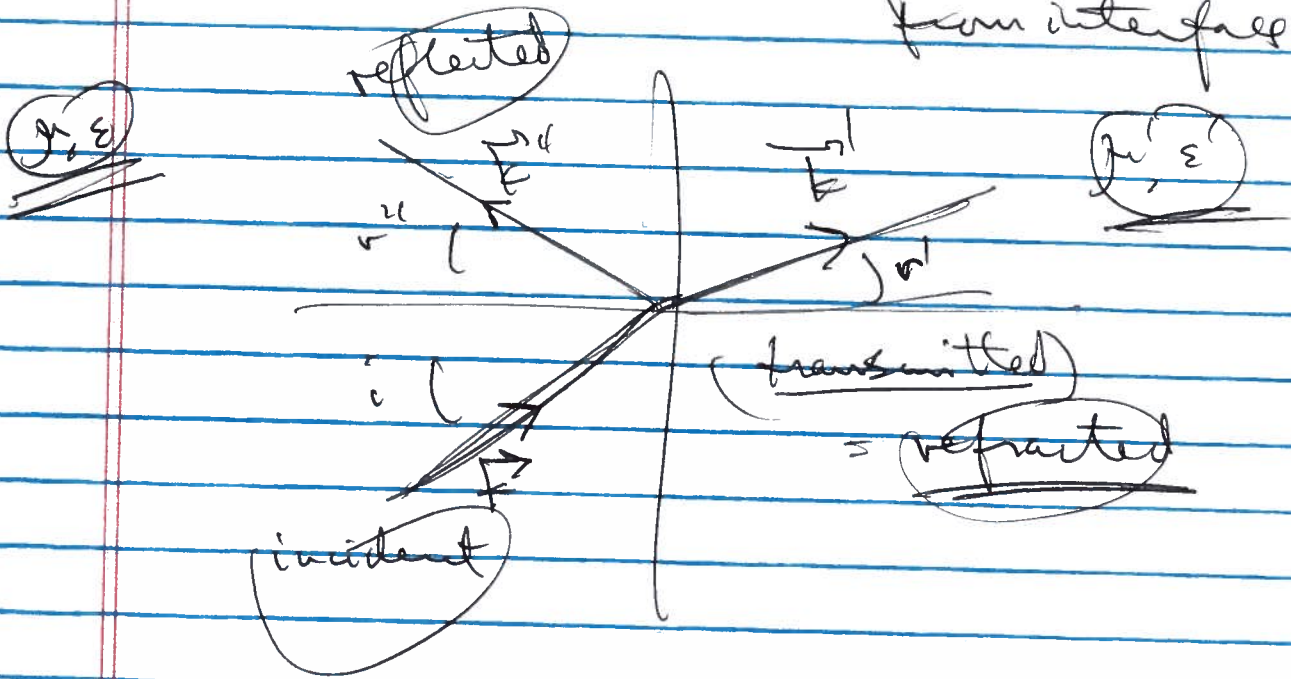 from interface
reflected
μ, ε
k⃗''
k⃗'
μ', ε'
r''
r'
i
transmitted
= refracted
k⃗
incident